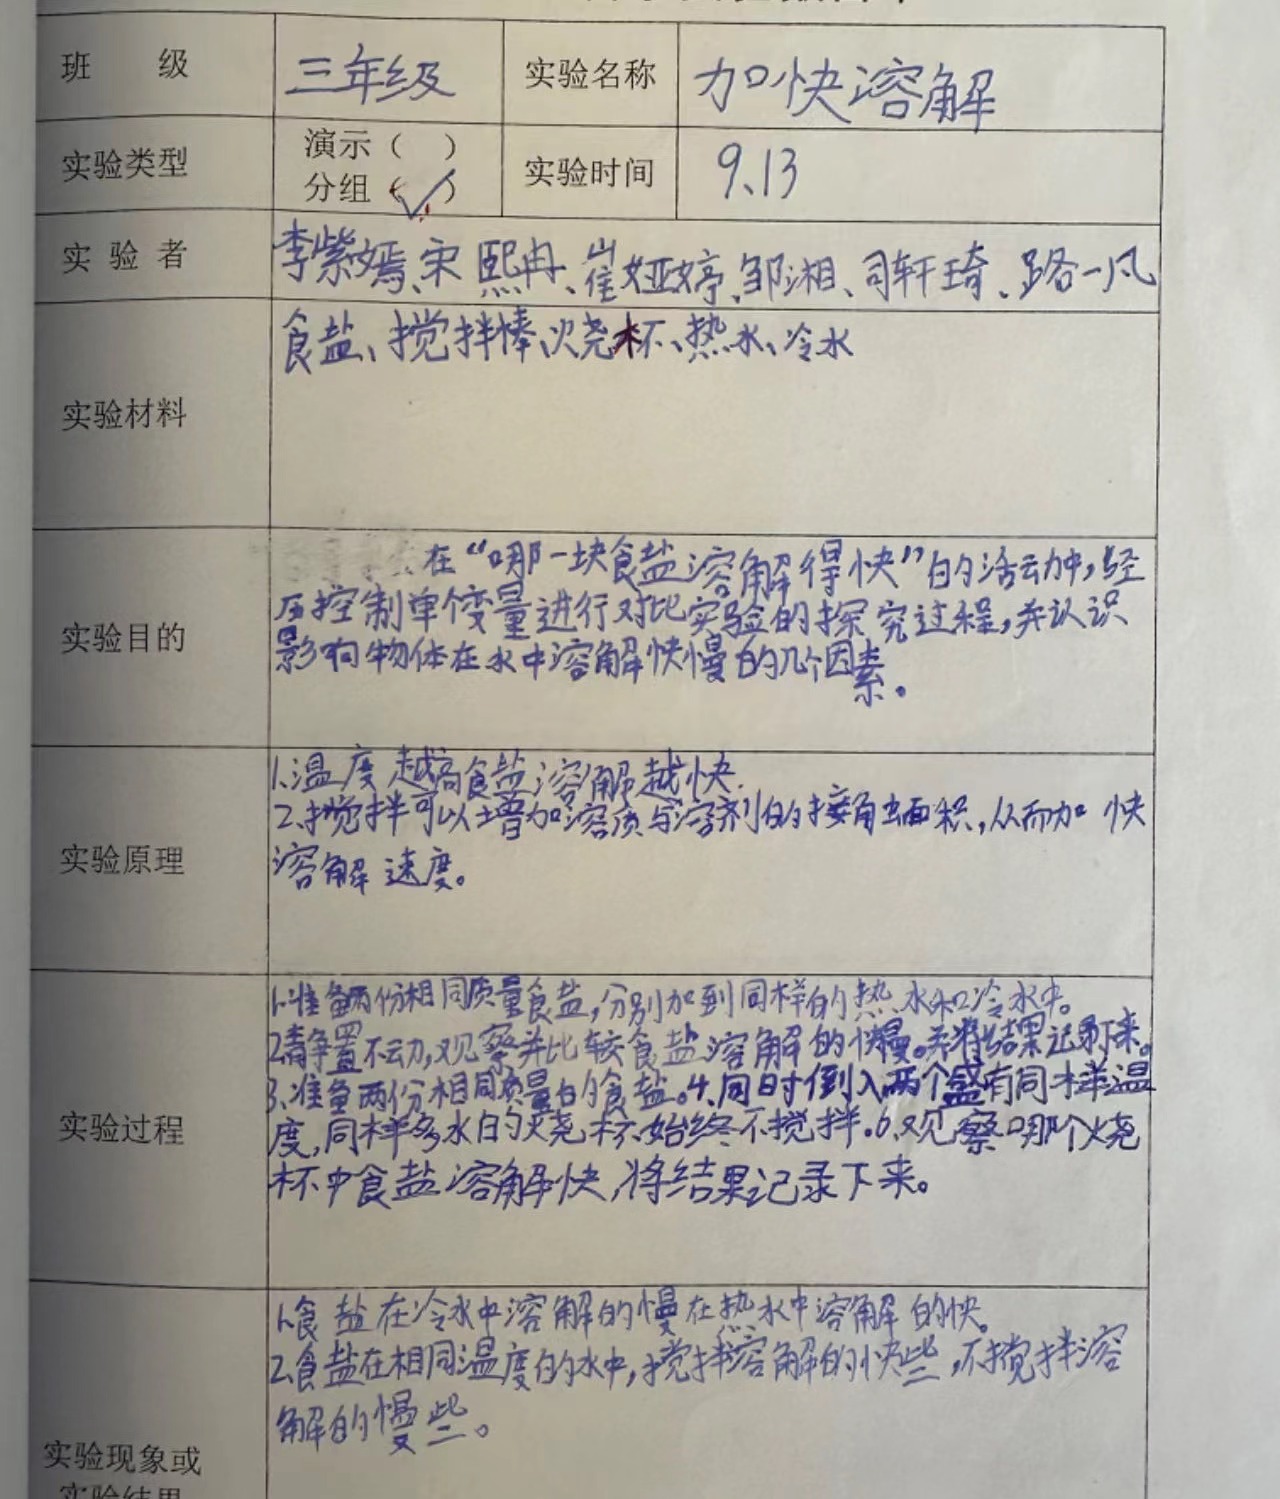 班 级 三年级 实验名称 加快溶解
实验类型 演示（ ） 分组（✓） 实验时间 9、13
实 验 者 李紫嫣、宋熙冉、崔娅婷、邹湘、司轩琦、路一凡
实验材料 食盐、搅拌棒、烧杯、热水、冷水
实验目的
在“哪一块食盐溶解得快”的活动中，经
历控制单个变量进行对比实验的探究过程，并认识
影响物体在水中溶解快慢的几个因
素。
实验原理
1、温度越高食盐溶解越快.
2、搅拌可以增加溶质与溶剂的接触面积，从而加快
溶解速度。
实验过程
1、准备两份相同质量食盐，分别加到同样的热水和冷水中。
2、静置不动，观察并比较食盐溶解的快慢。并将结果记录下来。
3、准备两份相同质量的食盐。4、同时倒入两个盛有同样温
度，同样多水的烧杯始终不搅拌。6、观察哪个烧
杯中食盐溶解快，将结果记录下来。
实验现象或
实验结果
1、食盐在冷水中溶解的慢在热水中溶解的快。
2、食盐在相同温度的水中，搅拌溶解的快些，不搅拌溶
解的慢些。